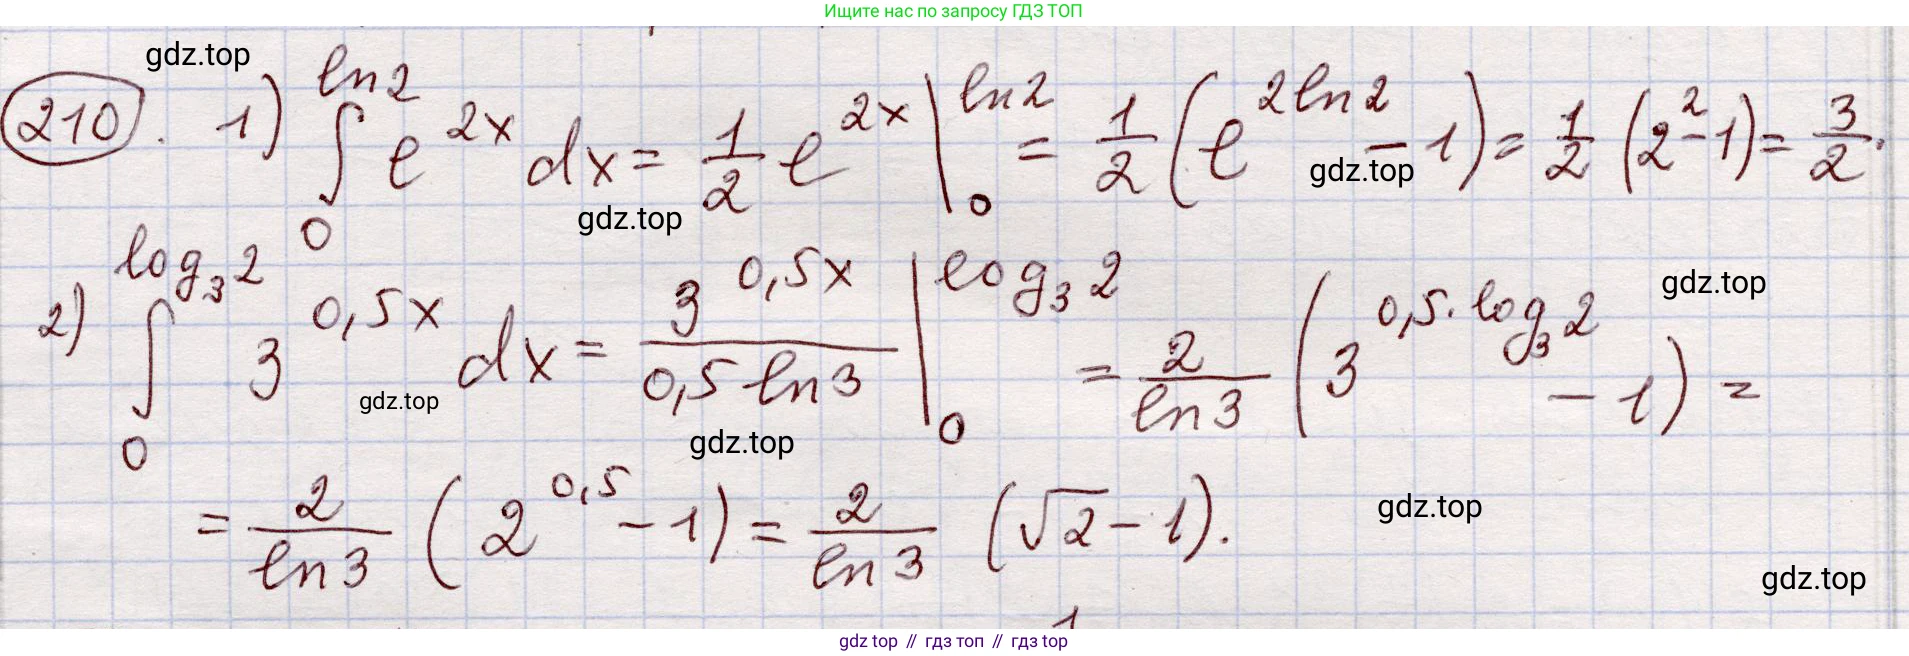 Ищите нас по запросу ГДЗ ТОП
gdz.top
210. 1) ∫₀^{ln2} e^{2x} dx = 1/2 e^{2x} |₀^{ln2} = 1/2 (e^{2ln2} - 1) = 1/2 (2² - 1) = 3/2.
gdz.top
gdz.top
2) ∫₀^{log₃2} 3^{0,5x} dx = 3^{0,5x}/(0,5 ln3) |₀^{log₃2} = 2/ln3 (3^{0,5·log₃2} - 1) =
gdz.top
gdz.top
gdz.top
= 2/ln3 (2^{0,5} - 1) = 2/ln3 (√2 - 1).
gdz.top
gdz.top
gdz top // гдз топ // гдз top